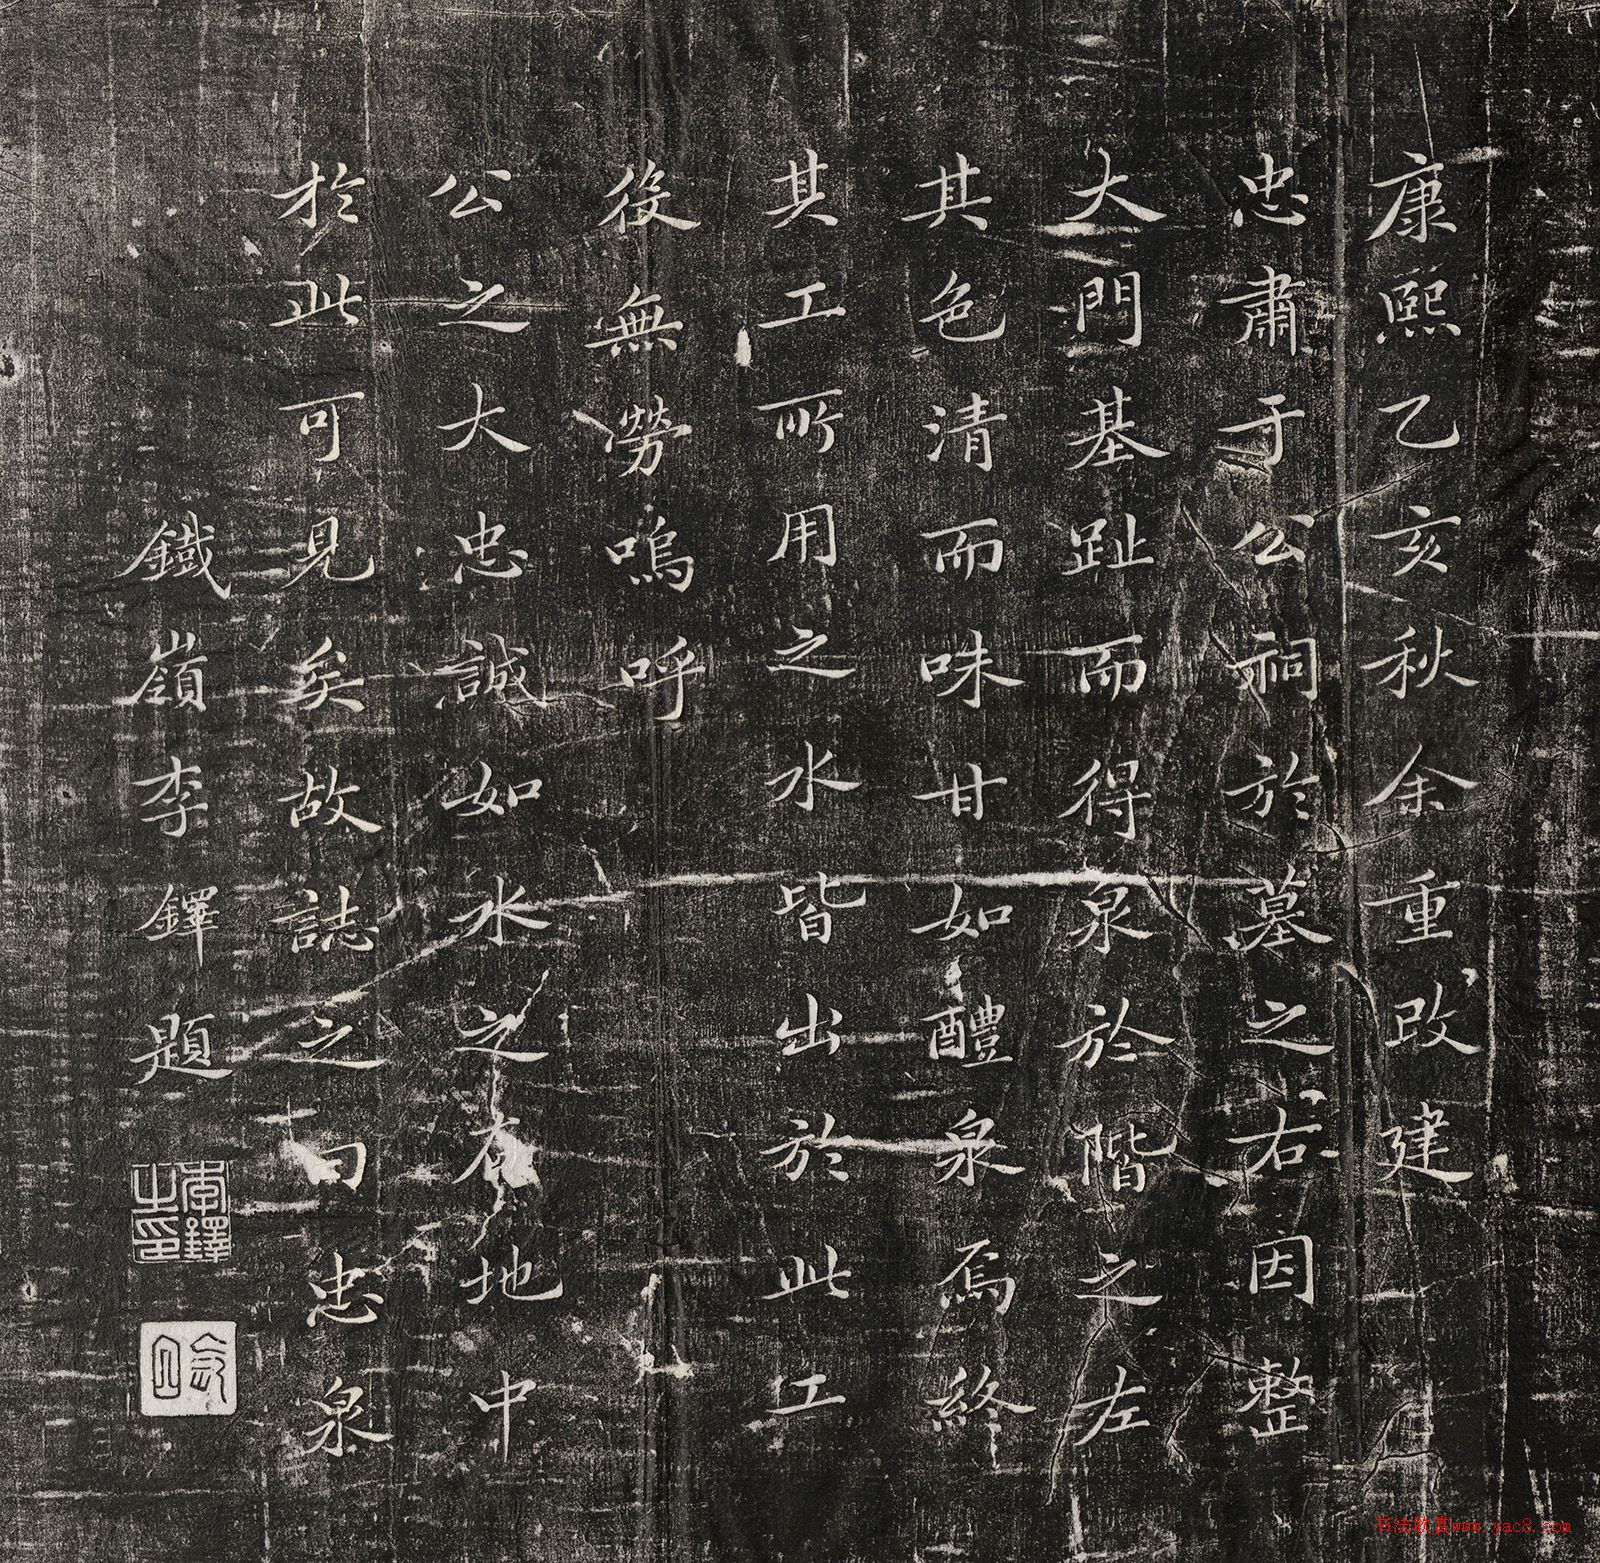 康熙乙亥秋余重改建
忠肅于公祠於墓之右因整
大門基趾而得泉於階之左
其色清而味甘如醴泉焉終
其工所用之水皆出於此工
後無勞嗚呼
公之大忠誠如水之在地中
於此可見矣故誌之曰忠泉
鐵嶺李鐸題
李鐸之印
书法欣赏www.yac8.com